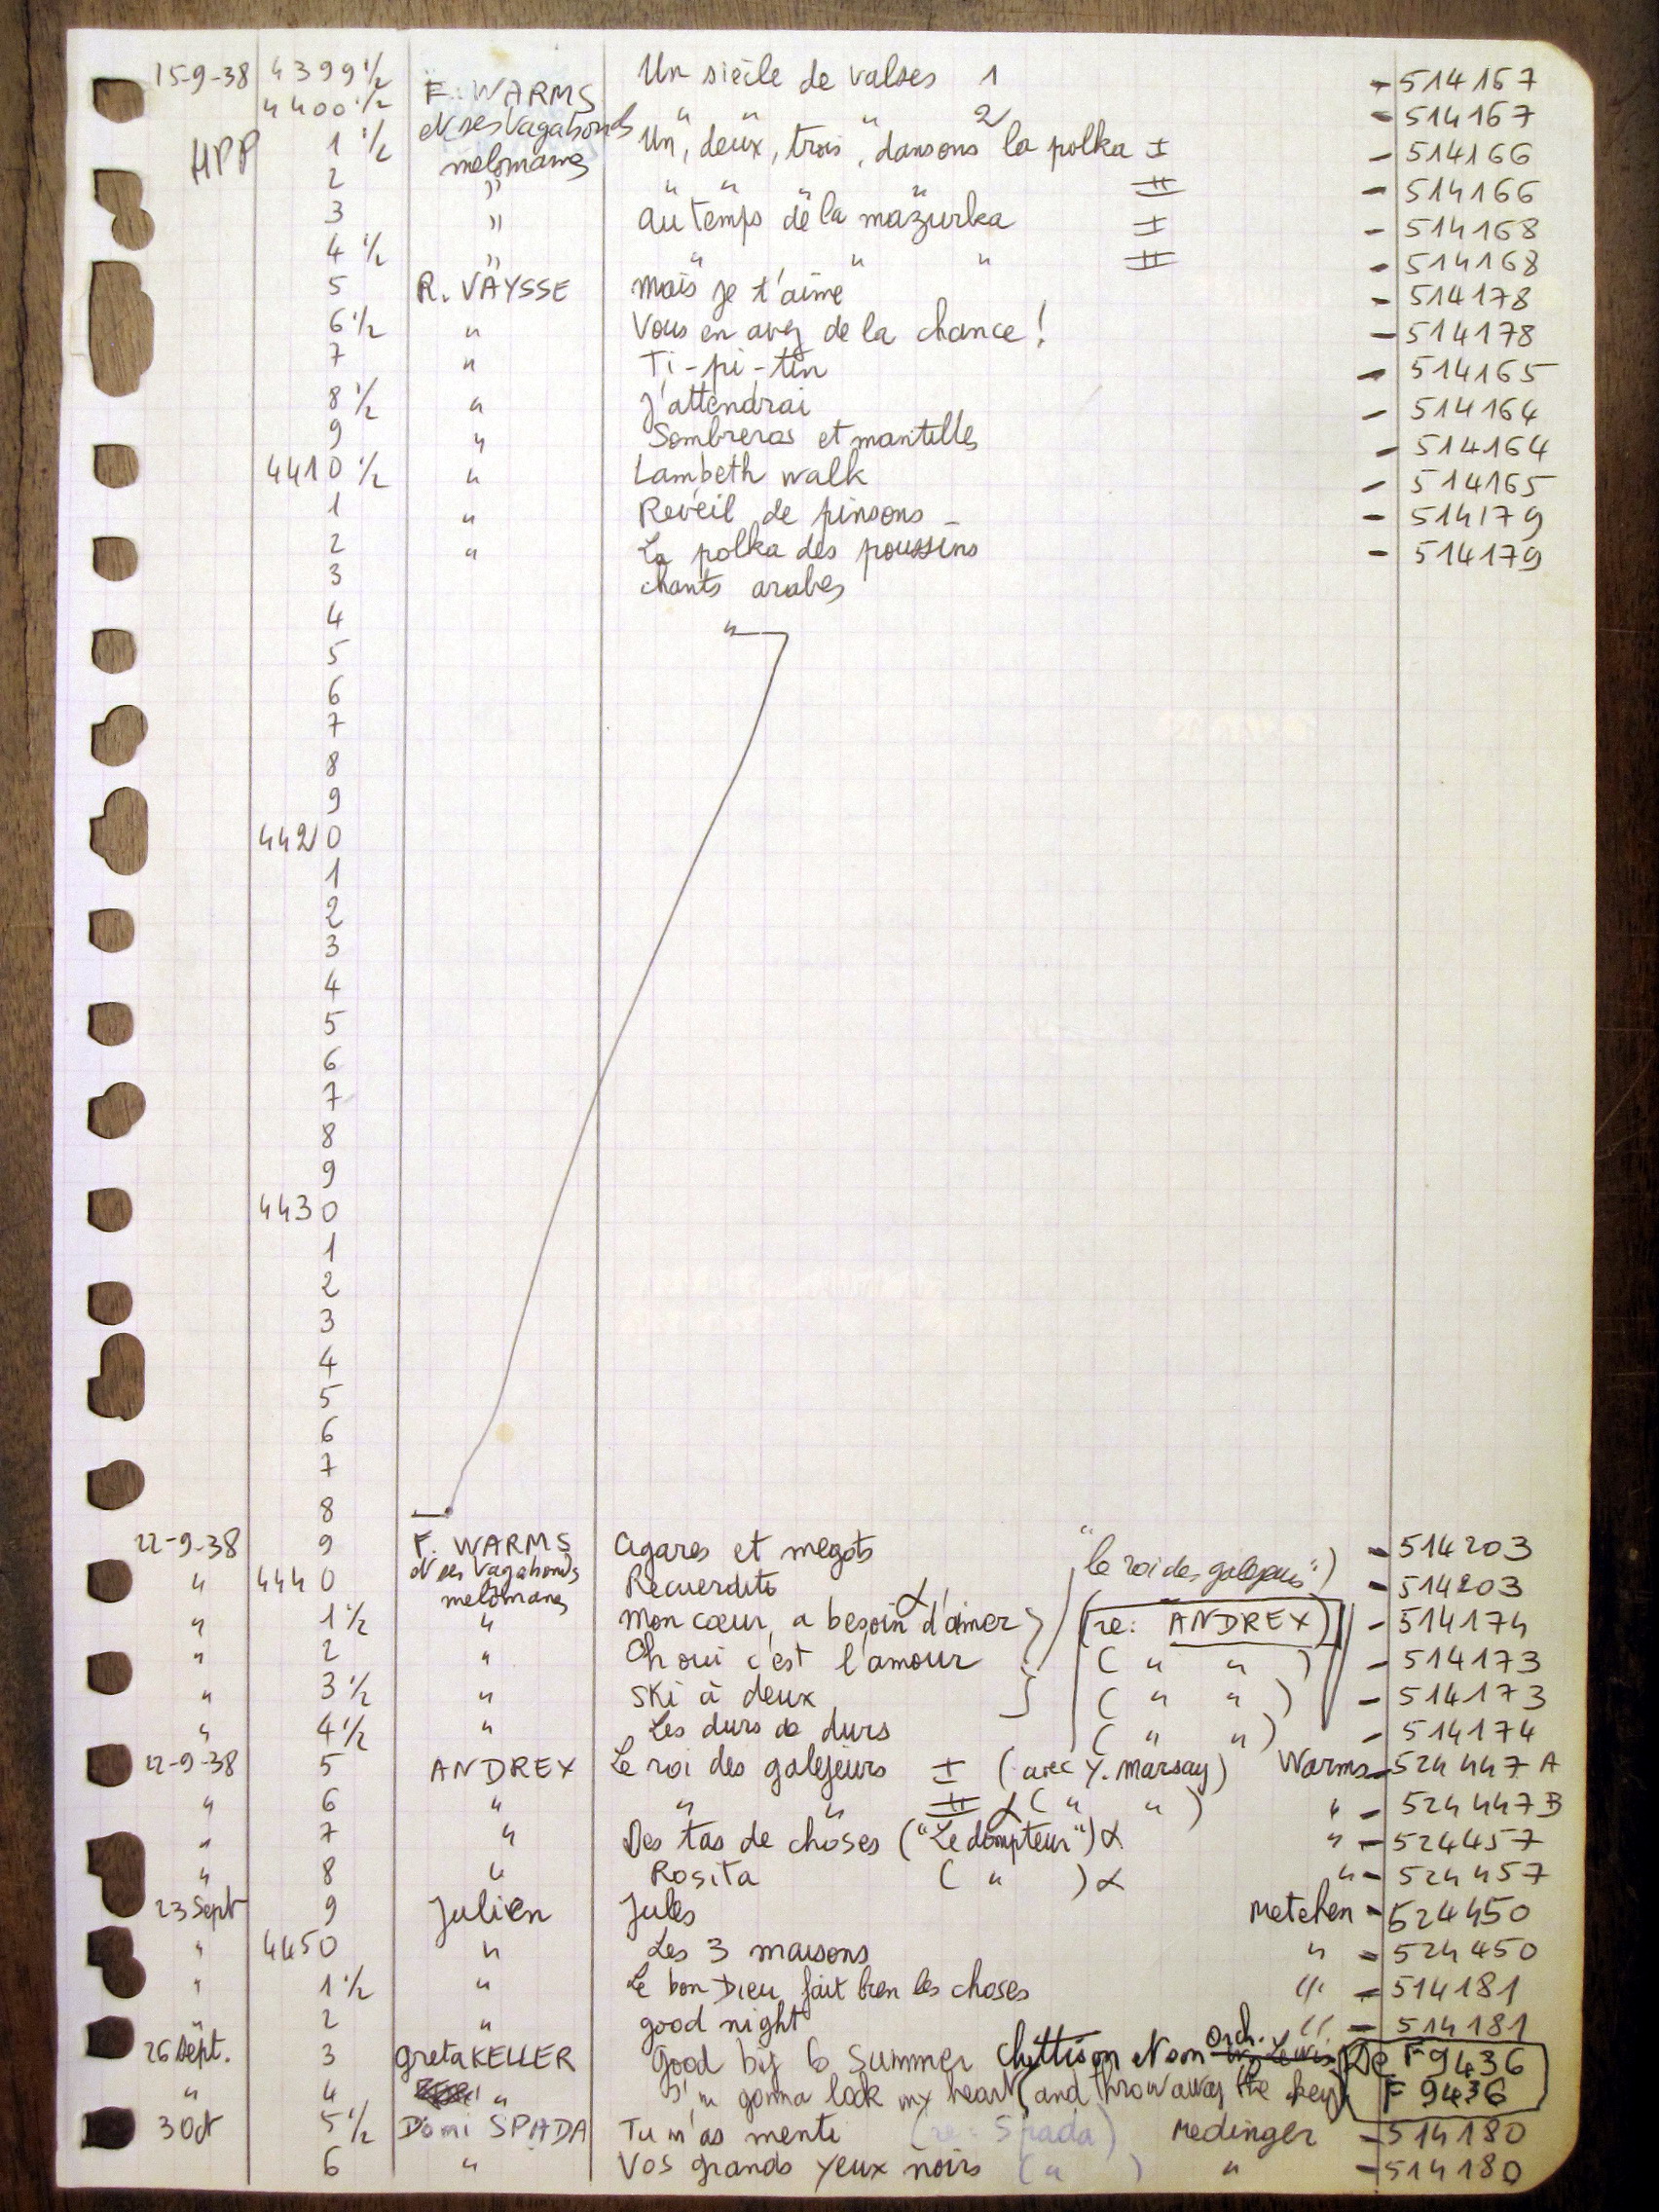 15-9-38 4399 1/2 F. WARMS Un siècle de valses 1 - 514167
4400 1/2 et ses vagabonds " " " 2 - 514167
HPP 1 1/2 melomanes Un, deux, trois, dansons la polka I - 514166
2 " " " " " II - 514166
3 " Au temps de la mazurka I - 514168
4 1/2 " " " " II - 514168
5 R. VAYSSE Mais je t'aime - 514178
6 1/2 " Vous en avez de la chance! - 514178
7 " Ti-pi-tin - 514165
8 1/2 " J'attendrai - 514164
9 " Sombreros et mantilles - 514164
4410 1/2 " Lambeth walk - 514165
1 " Reveil de pinsons - - 514179
2 " La polka des poussins - 514179
3 chants arabes
4 "
5
6
7
8
9
4420
1
2
3
4
5
6
7
8
9
4430
1
2
3
4
5
6
7
8
22-9-38 9 F. WARMS Cigares et megots "le roi des galejeurs") - 514203
" 4440 et ses vagabonds melomanes Recuerdito - 514203
" 1 1/2 " Mon cœur a besoin d'aimer (re: ANDREX) - 514174
" 2 " Oh oui c'est l'amour ( " " ) - 514173
" 3 1/2 " Ski à deux ( " " ) - 514173
" 4 1/2 " Les durs de durs ( " " ) - 514174
22-9-38 5 ANDREX Le roi des galejeurs I (avec Y. Marsay) Warms - 524447 A
" 6 " " " II α ( " " ) " - 524447 B
" 7 " Des tas de choses ("Le dompteur") α " - 524457
" 8 " Rosita ( " ) α " - 524457
23 Sept 9 Julien Jules Metehen - 524450
" 4450 " Les 3 maisons " - 524450
" 1 1/2 " Le bon Dieu fait bien les choses " - 514181
" 2 " good night " - 514181
26 Sept. 3 Greta KELLER Good bij to Summer Chittison et son Orch. De F 9436
" 4 " I'm gonna lock my heart (and throw away the key) F 9436
3 Oct 5 1/2 Domi SPADA Tu m'as menti (re: Spada) Medinger - 514180
6 " Vos grands yeux noirs ( " ) " - 514180